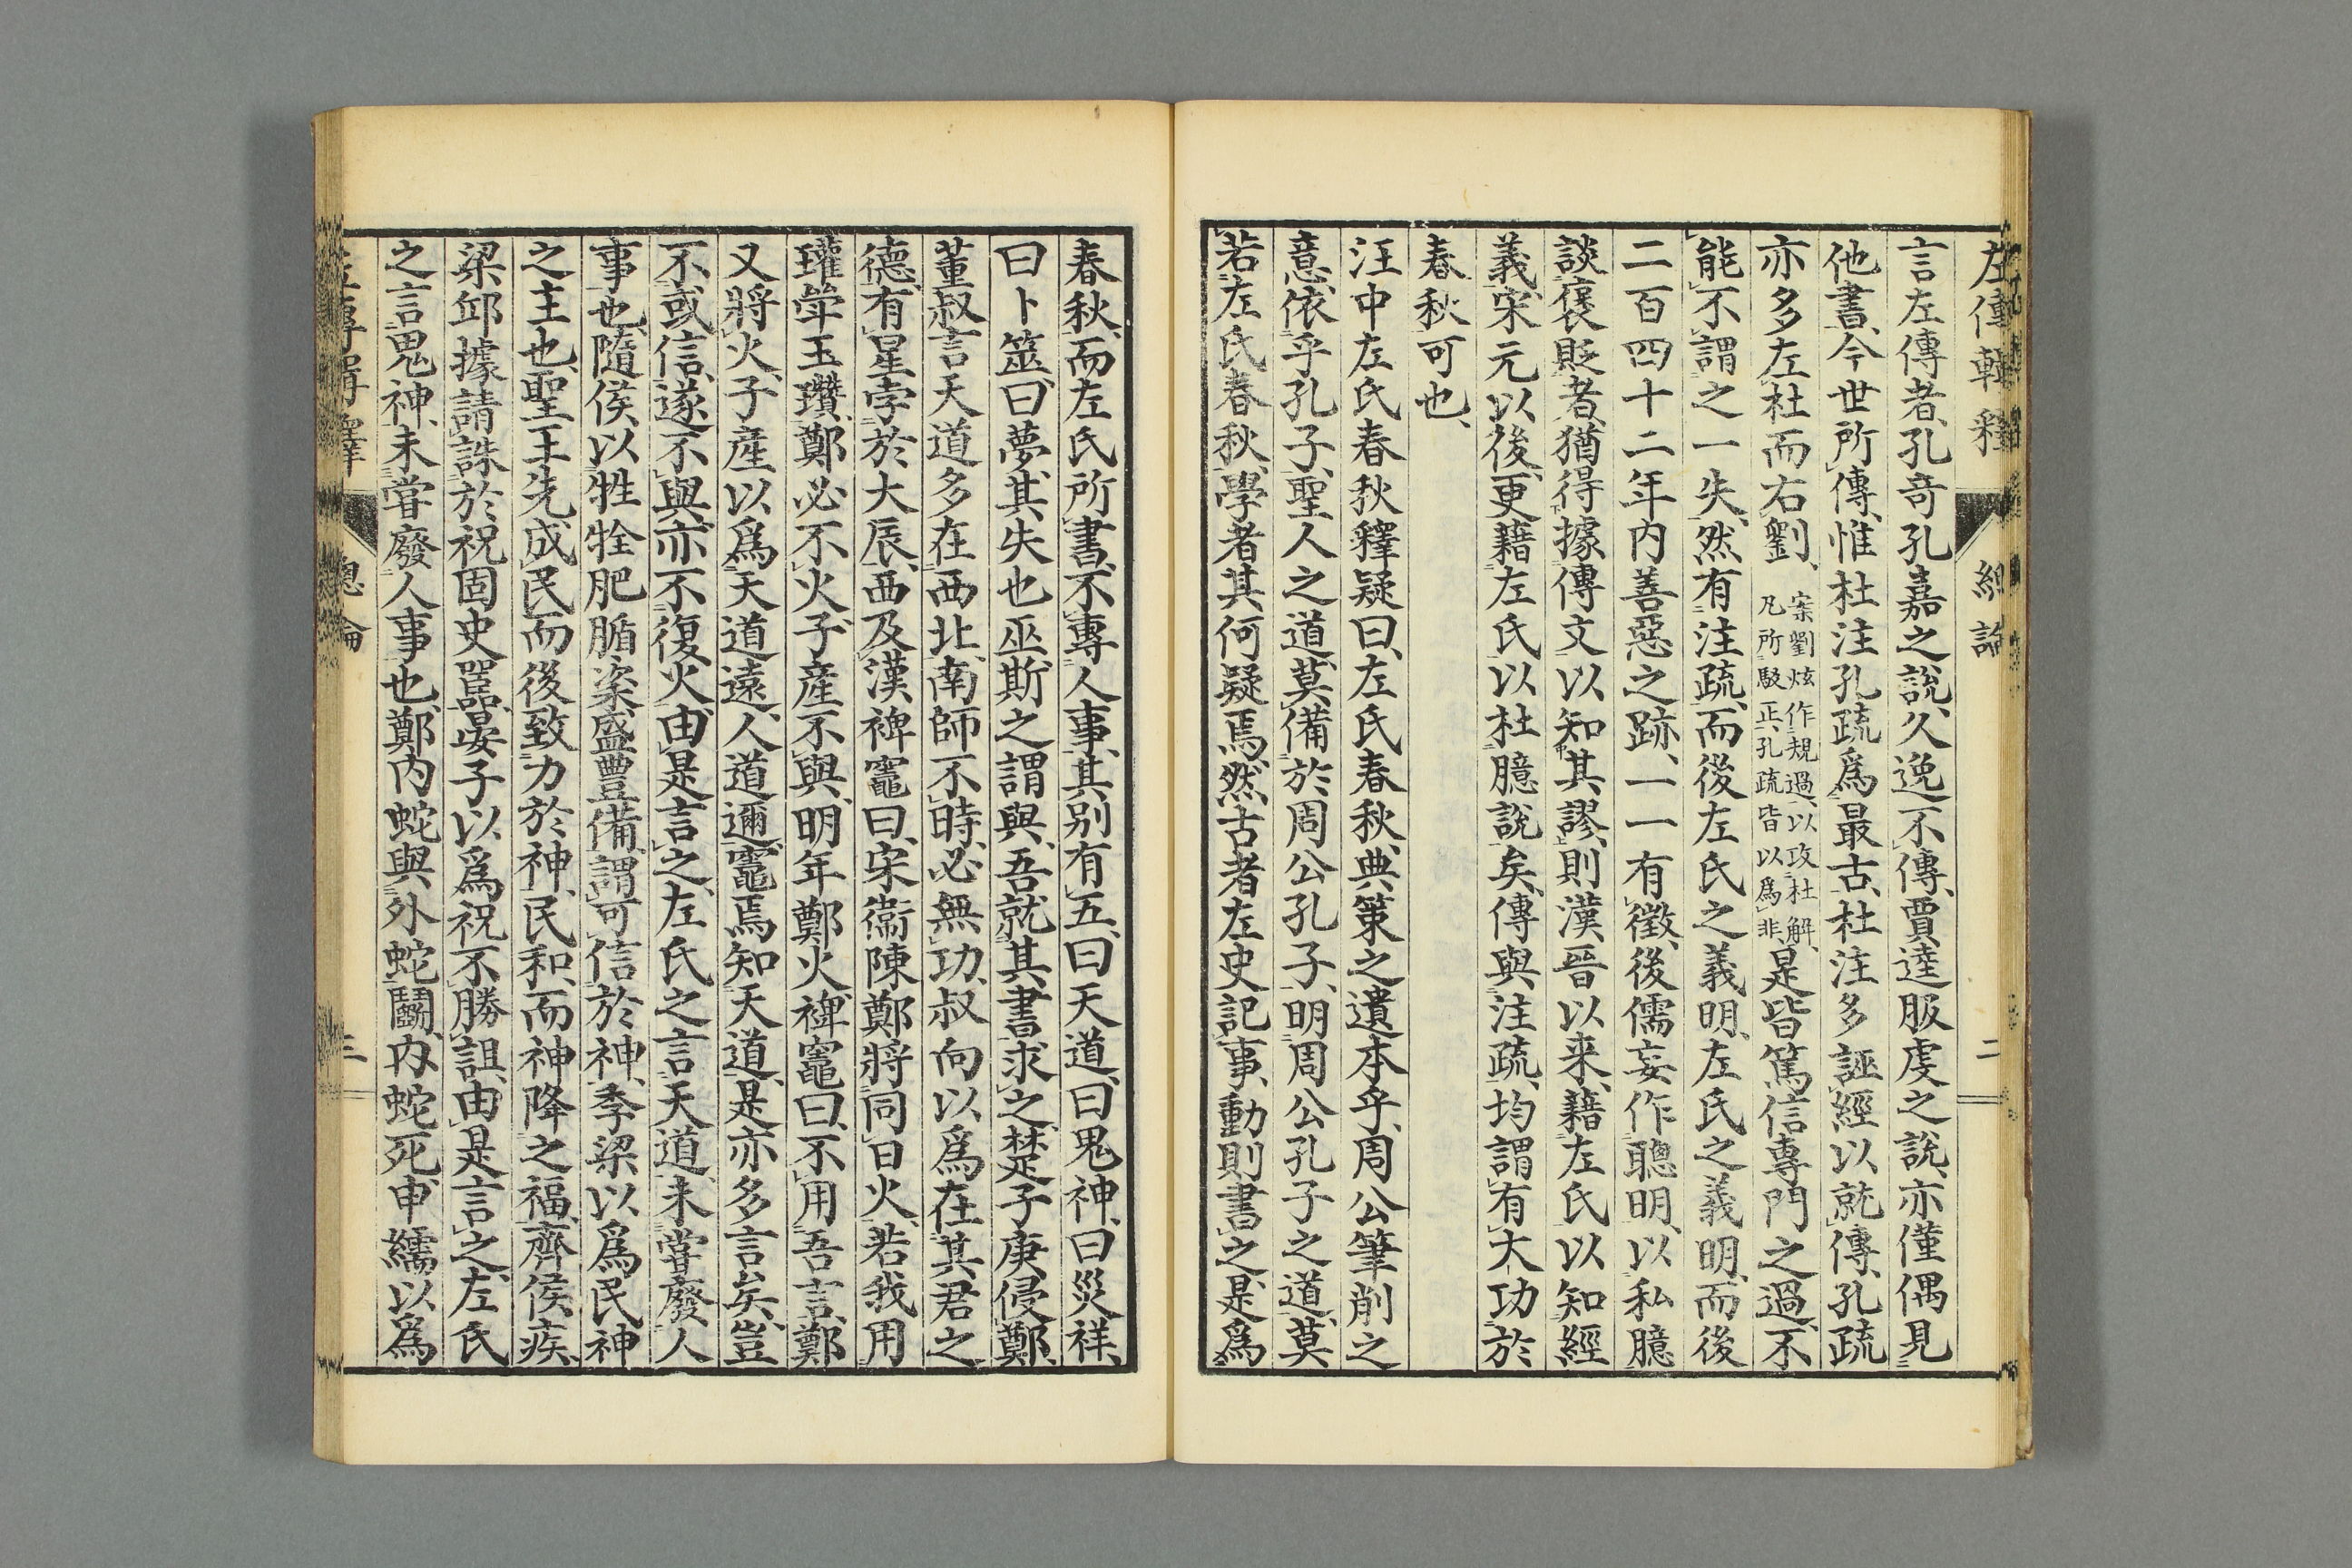 左傳輯釋 總論 二
言左傳者、孔奇孔嘉之說、久逸不傳、賈逵服虔之說、亦僅偶見
他書、今世所傳、惟杜注孔疏爲最古、杜注多誣經以就傳、孔疏
亦多左杜而右劉、案劉炫作規過、以攻杜解、凡所駁正、孔疏皆以爲非、是皆篤信專門之過、不
能不謂之一失、然有注疏、而後左氏之義明、左氏之義明、而後
二百四十二年內善惡之跡、一一有徵、後儒妄作聰明、以私臆
談褒貶者、猶得據傳文以知其謬、則漢晉以來、藉左氏以知經
義、宋元以後、更藉左氏以杜臆說矣、傳與注疏、均謂有大功於
春秋可也、
汪中左氏春秋釋疑曰、左氏春秋、典策之遺本乎、周公筆削之
意、依乎孔子、聖人之道、莫備於周公孔子、明周公孔子之道、莫
若左氏春秋、學者其何疑焉、然古者左史記事、動則書之、是爲
春秋、而左氏所書、不專人事、其別有五、曰天道、曰鬼神、曰災祥、
曰卜筮、曰夢、其失也巫、斯之謂與、吾就其書求之、楚子庚侵鄭、
董叔言天道多在西北、南師不時、必無功、叔向以爲在其君之
德、有星孛於大辰、西及漢、裨竈曰、宋衞陳鄭將同日火、若我用
瓘斝玉瓚、鄭必不火、子產不與、明年鄭火、裨竈曰、不用吾言、鄭
又將火、子產以爲天道遠、人道邇、竈焉知天道、是亦多言矣、豈
不或信、遂不與、亦不復火、由是言之、左氏之言天道、未嘗廢人
事也、隨侯以牲牷肥腯粢盛豐備、謂可信於神、季梁以爲民神
之主也、聖王先成民、而後致力於神、民和、而神降之福、齊侯疾、
梁邱據請誅於祝固史嚚、晏子以爲祝不勝詛、由是言之、左氏
之言鬼神、未嘗廢人事也、鄭內蛇與外蛇鬭、內蛇死、申繻以爲
左傳輯釋 總論 三